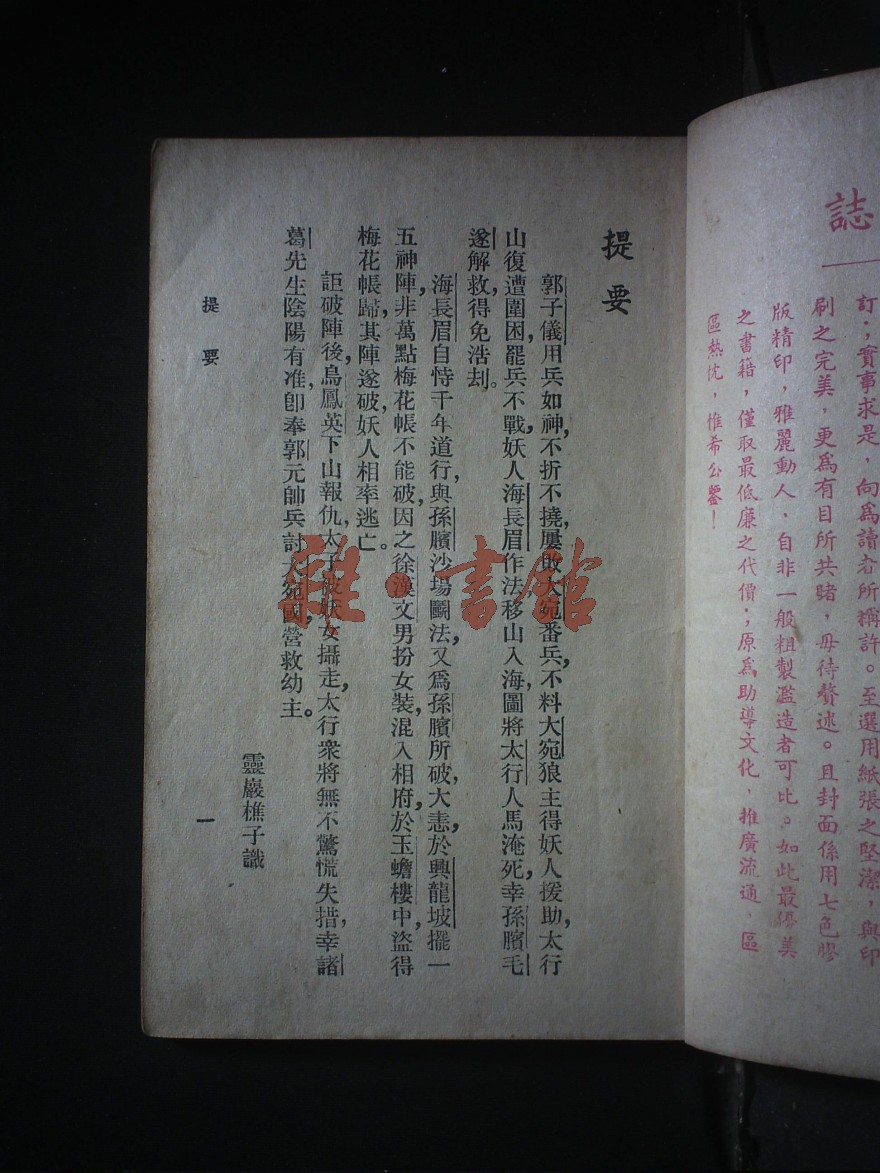 誌
訂；實事求是，向爲讀者所稱許。至選用紙張之堅潔，與印
刷之完美，更爲有目所共睹，毋待贅述。且封面係用七色膠
版精印，雅麗動人，自非一般粗製濫造者可比。如此最優美
之書籍，僅取最低廉之代價；原爲助導文化，推廣流通，區
區熱忱，惟希公鑒！
提要
郭子儀用兵如神，不折不撓，屢敗大宛番兵，不料大宛狼主得妖人援助，太行
山復遭圍困，罷兵不戰，妖人海長眉作法移山入海，圖將太行人馬淹死，幸孫臏毛
遂解救，得免浩刦。
海長眉自恃千年道行，與孫臏沙場鬬法，又爲孫臏所破，大恚，於興龍坡擺一
五神陣，非萬點梅花帳不能破，因之徐漢文男扮女裝，混入相府，於玉蟾樓中，盜得
梅花帳歸，其陣遂破，妖人相率逃亡。
詎破陣後，烏鳳英下山報仇，太子被妖女攝走，太行衆將無不驚慌失措，幸諸
葛先生陰陽有准，卽奉郭元帥兵討大宛國，營救幼主。
靈巖樵子識
提要
一
雅·書館